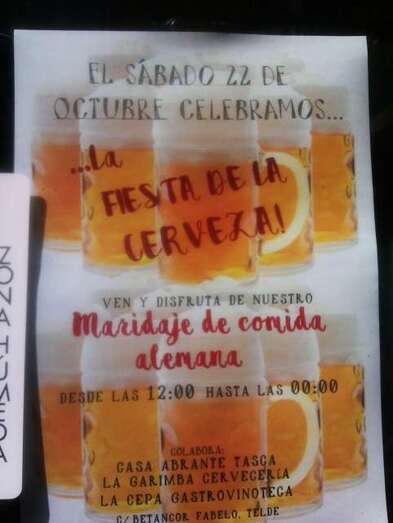 EL SÁBADO 22 DE
OCTUBRE CELEBRAMOS...
...LA
FIESTA DE LA
CERVEZA!
VEN Y DISFRUTA DE NUESTRO
Maridaje de comida
alemana
DESDE LAS 12:00 HASTA LAS 00:00
COLABORA:
CASA ABRANTE TASCA
LA GARIMBA CERVECERÍA
LA CEPA GASTROVINOTECA
C/ BETANCOR FABELO, TELDE
ZONA HUMEDA